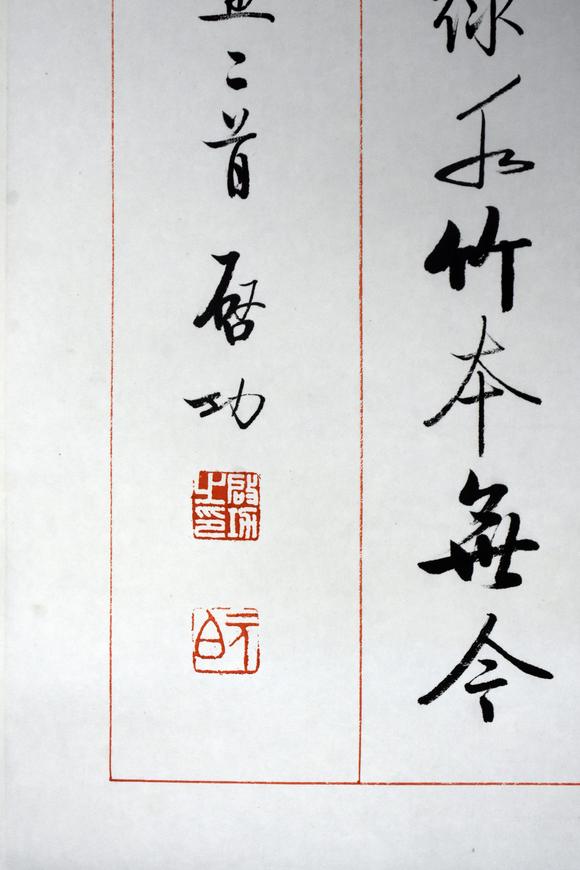 竹本無今
二首 啓功
啓功之印
元白